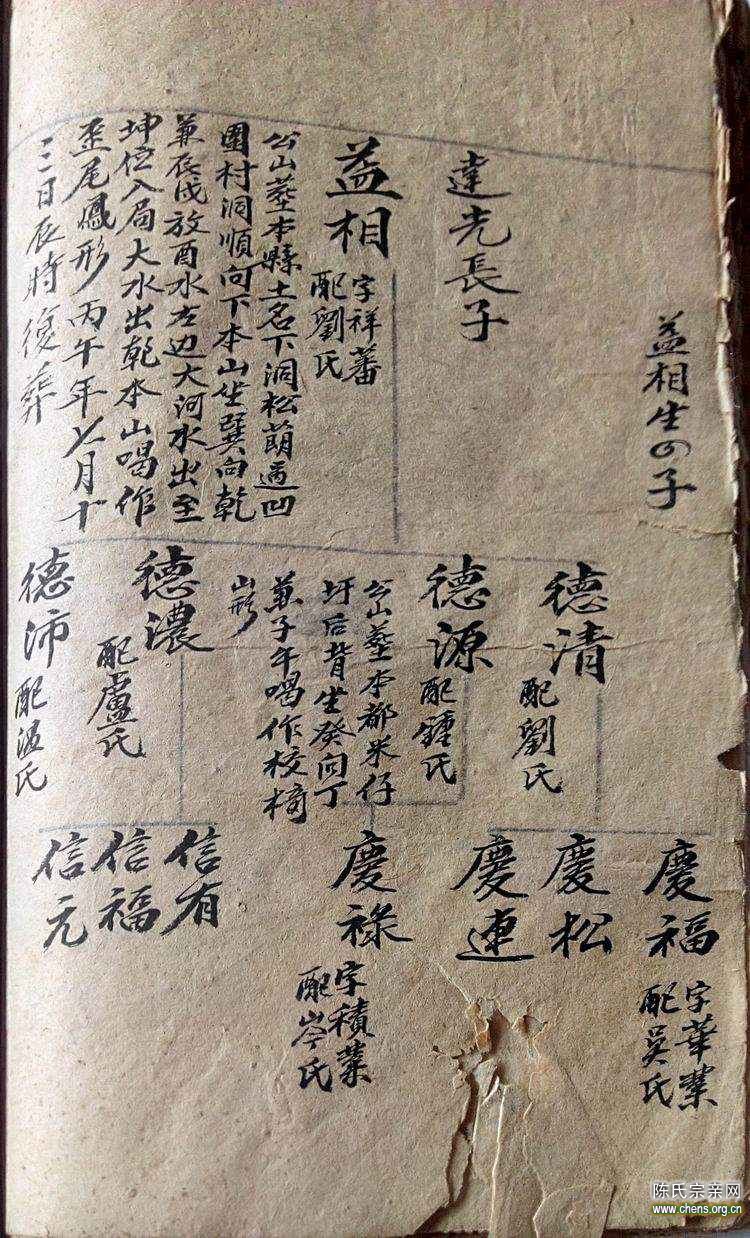 益相生の子
達光長子
益相
字祥蕃
配劉氏
公山塟本縣土名下洞松萠逕凹
圍村洞順向下本山坐巽向乾
兼辰戌放酉水左边大河水出至
坤位入局大水出乾本山喝作
歪尾鳯形丙午年七月十
三日辰時復葬
德清
配劉氏
德源
配鍾氏
公山塟本都米仔
圩后背坐癸向丁
兼子午喝作校椅
山形
德濃
配盧氏
德沛
配温氏
慶福
字華業
配吳氏
慶松
慶連
慶祿
字積業
配岑氏
信有
信福
信元
陈氏宗亲网
www.chens.org.cn